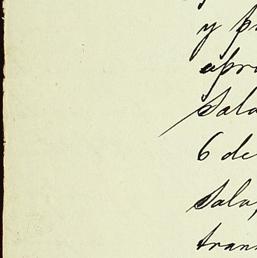 y p
apro
Sala
6 de
Sala,
tran